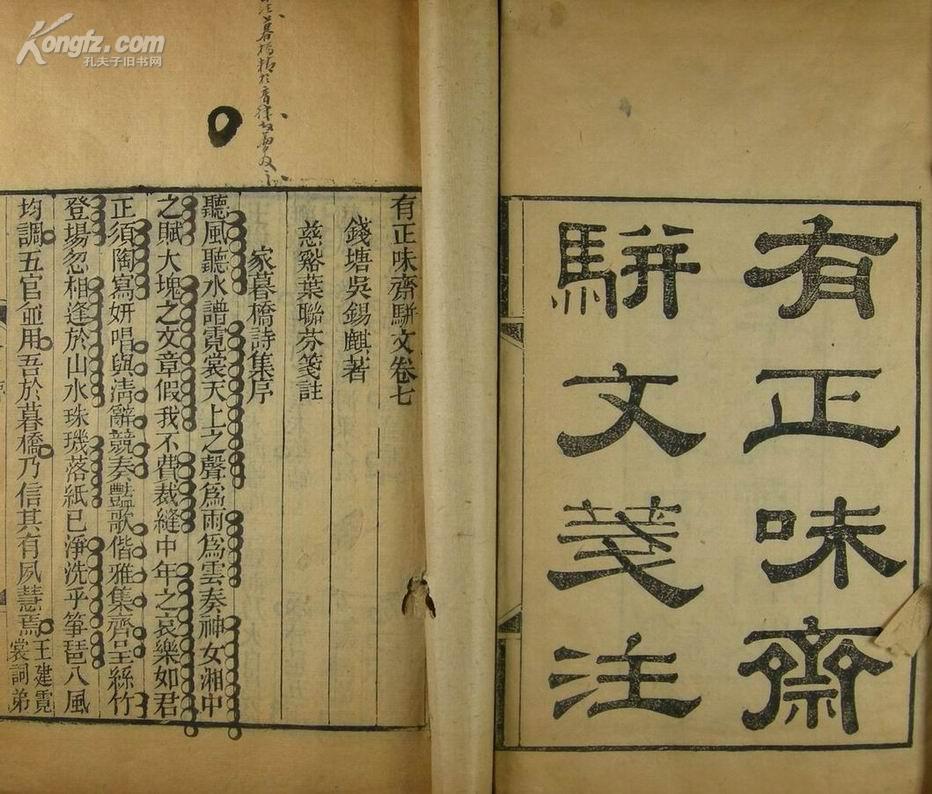 有正味齋
駢文箋注
有正味齋駢文卷七
錢塘吳錫麒著
慈谿葉聯芬箋註
家暮橋詩集序
聽風聽水譜霓裳天上之聲爲雨爲雲奏神女湘中
之賦大塊之文章假我不費裁縫中年之哀樂如君
正須陶寫妍唱與淸辭競奏豔歌偕雅集齊呈絲竹
登場忽相逢於山水珠璣落紙已淨洗乎箏琶八風
均調五官並用吾於暮橋乃信其有夙慧焉王建霓
裳詞弟
Kongfz.com
孔夫子旧书网